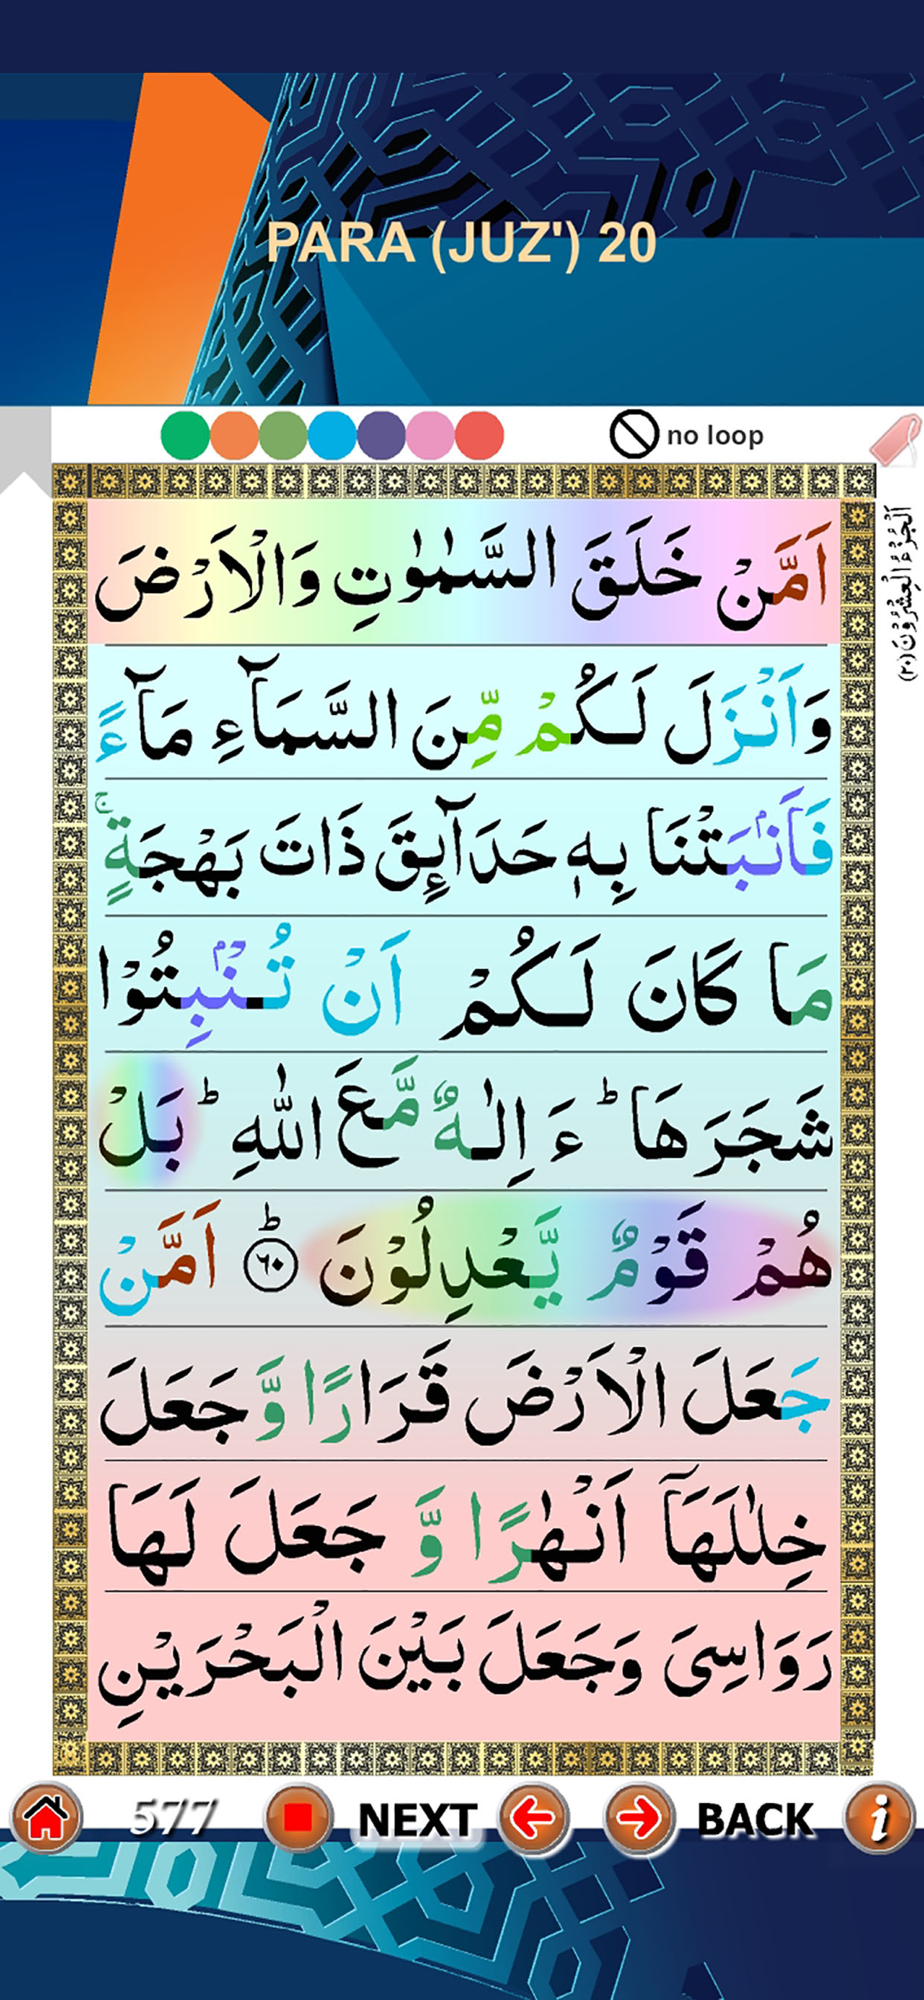 PARA (JUZ') 20
no loop
اَلْجُزْءُ الْعِشْرُوْنَ (۲۰)
اَمَّنْ خَلَقَ السَّمٰوٰتِ وَالْاَرْضَ
وَاَنْزَلَ لَكُمْ مِّنَ السَّمَآءِ مَآءً
فَاَنْۢبَتْنَا بِهٖ حَدَآئِقَ ذَاتَ بَهْجَةٍ ۚ
مَا كَانَ لَكُمْ اَنْ تُنْۢبِتُوْا
شَجَرَهَا ؕ ءَ اِلٰهٌ مَّعَ اللّٰهِ ؕ بَلْ
هُمْ قَوْمٌ يَّعْدِلُوْنَ ؕ ﴿۶۰﴾ اَمَّنْ
جَعَلَ الْاَرْضَ قَرَارًا وَّ جَعَلَ
خِلٰلَهَاۤ اَنْهٰرًا وَّ جَعَلَ لَهَا
رَوَاسِىَ وَجَعَلَ بَيْنَ الْبَحْرَيْنِ
577 NEXT BACK i